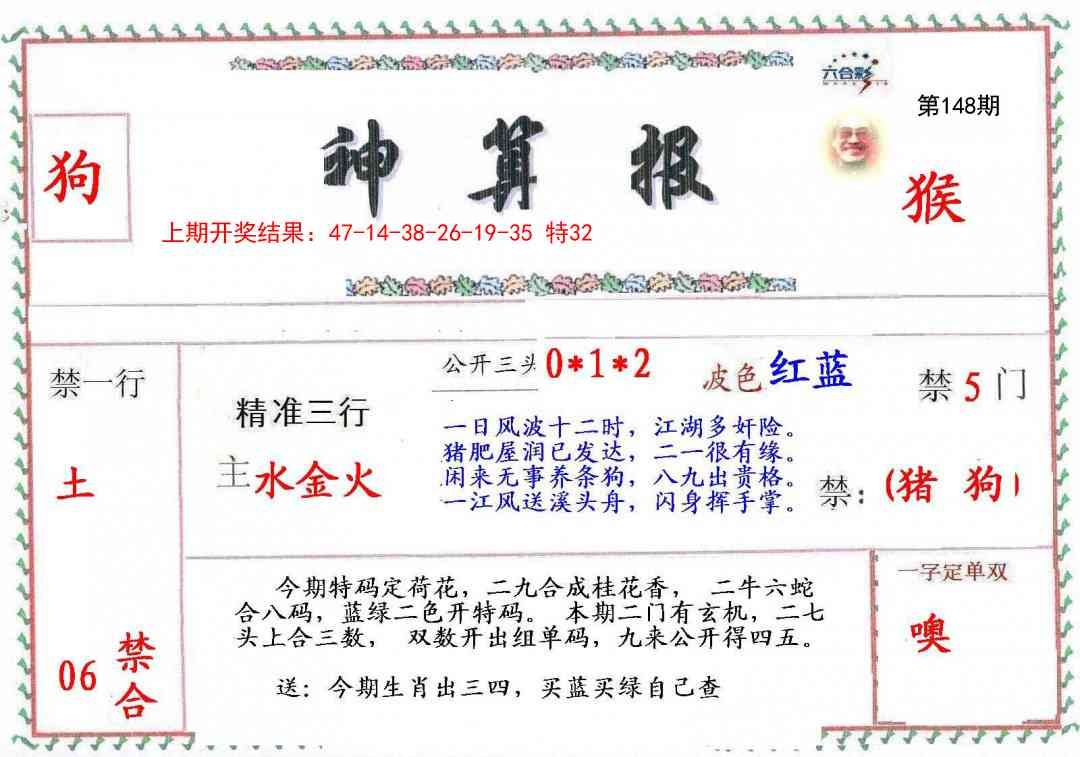 六合彩
第148期
狗
神算报
猴
上期开奖结果：47-14-38-26-19-35 特32
禁一行
土
06
禁合
精准三行
主水金火
公开三头0*1*2
波色红蓝
一日风波十二时，江湖多奸险。
猪肥屋润已发达，二一很有缘。
闲来无事养条狗，八九出贵格。
一江风送溪头舟，闪身挥手掌。
禁5门
禁：(猪 狗)
今期特码定荷花，二九合成桂花香， 二牛六蛇
合八码，蓝绿二色开特码。 本期二门有玄机，二七
头上合三数， 双数开出组单码，九来公开得四五。
送：今期生肖出三四，买蓝买绿自己查
一字定单双
噢